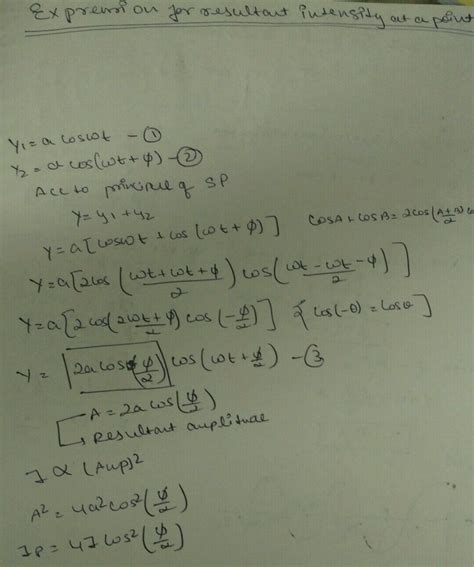 Expression for resultant intensity at a point
y₁ = a cosωt - ①
y₂ = a cos(ωt + φ) - ②
Acc to principle of SP
y = y₁ + y₂
y = a[cosωt + cos(ωt + φ)] cosA + cosB = 2cos(A+B/2) c
y = a[2cos (ωt+ωt+φ/2) cos(ωt-ωt-φ/2)]
y = a[2cos(2ωt+φ/2) cos(-φ/2)] {cos(-θ) = cosθ]
y = [2a cos(φ/2)] cos(ωt+φ/2) - ③
A = 2a cos(φ/2)
Resultant amplitude
I ∝ (Amp)²
A² = 4a²cos²(φ/2)
Ip = 4I cos²(φ/2)